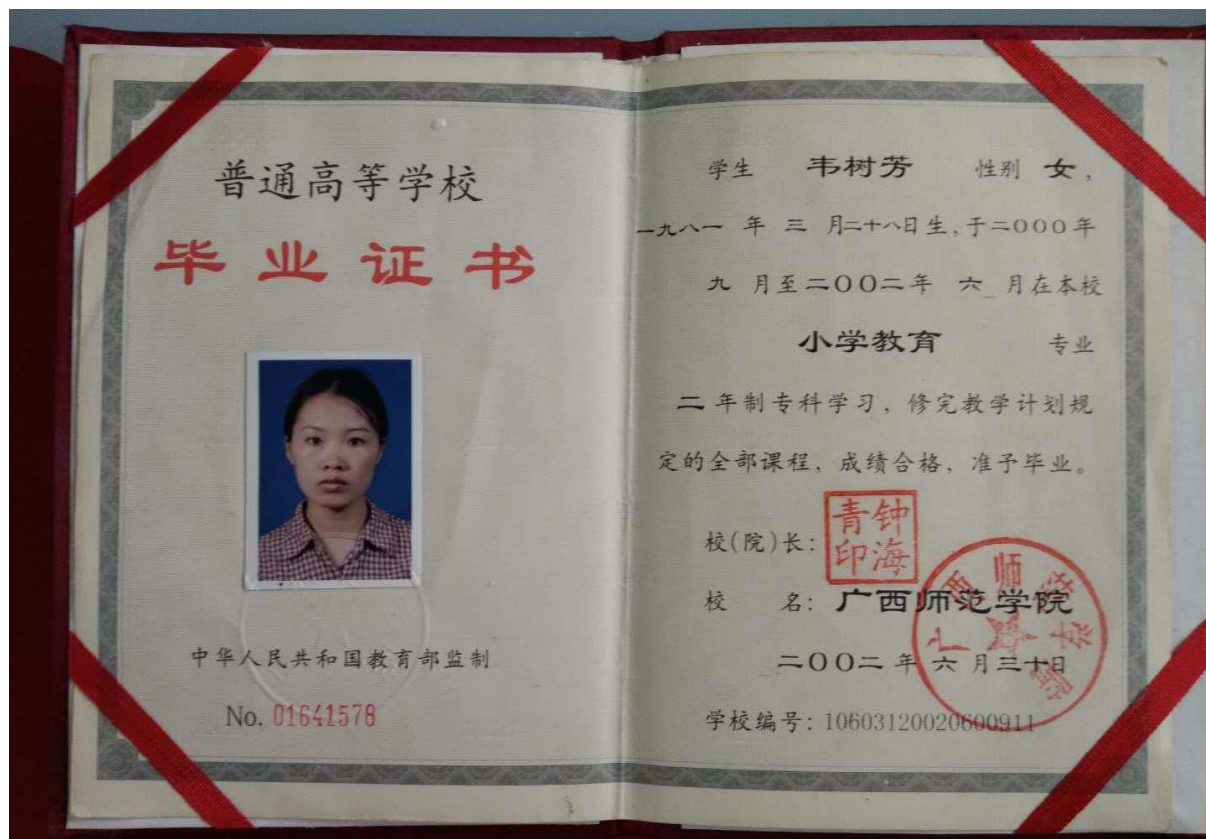 普通高等学校
毕业证书
中华人民共和国教育部监制
No. 01641578
学生 韦树芳 性别 女,
一九八一 年 三 月二十八日生,于二000年
九 月至二00二年 六 月在本校
小学教育 专业
二 年制专科学习，修完教学计划规
定的全部课程，成绩合格，准予毕业。
校(院)长:
钟海青印
校 名: 广西师范学院
广西师范学院
二00二 年 六 月三十日
学校编号: 10603120020600911